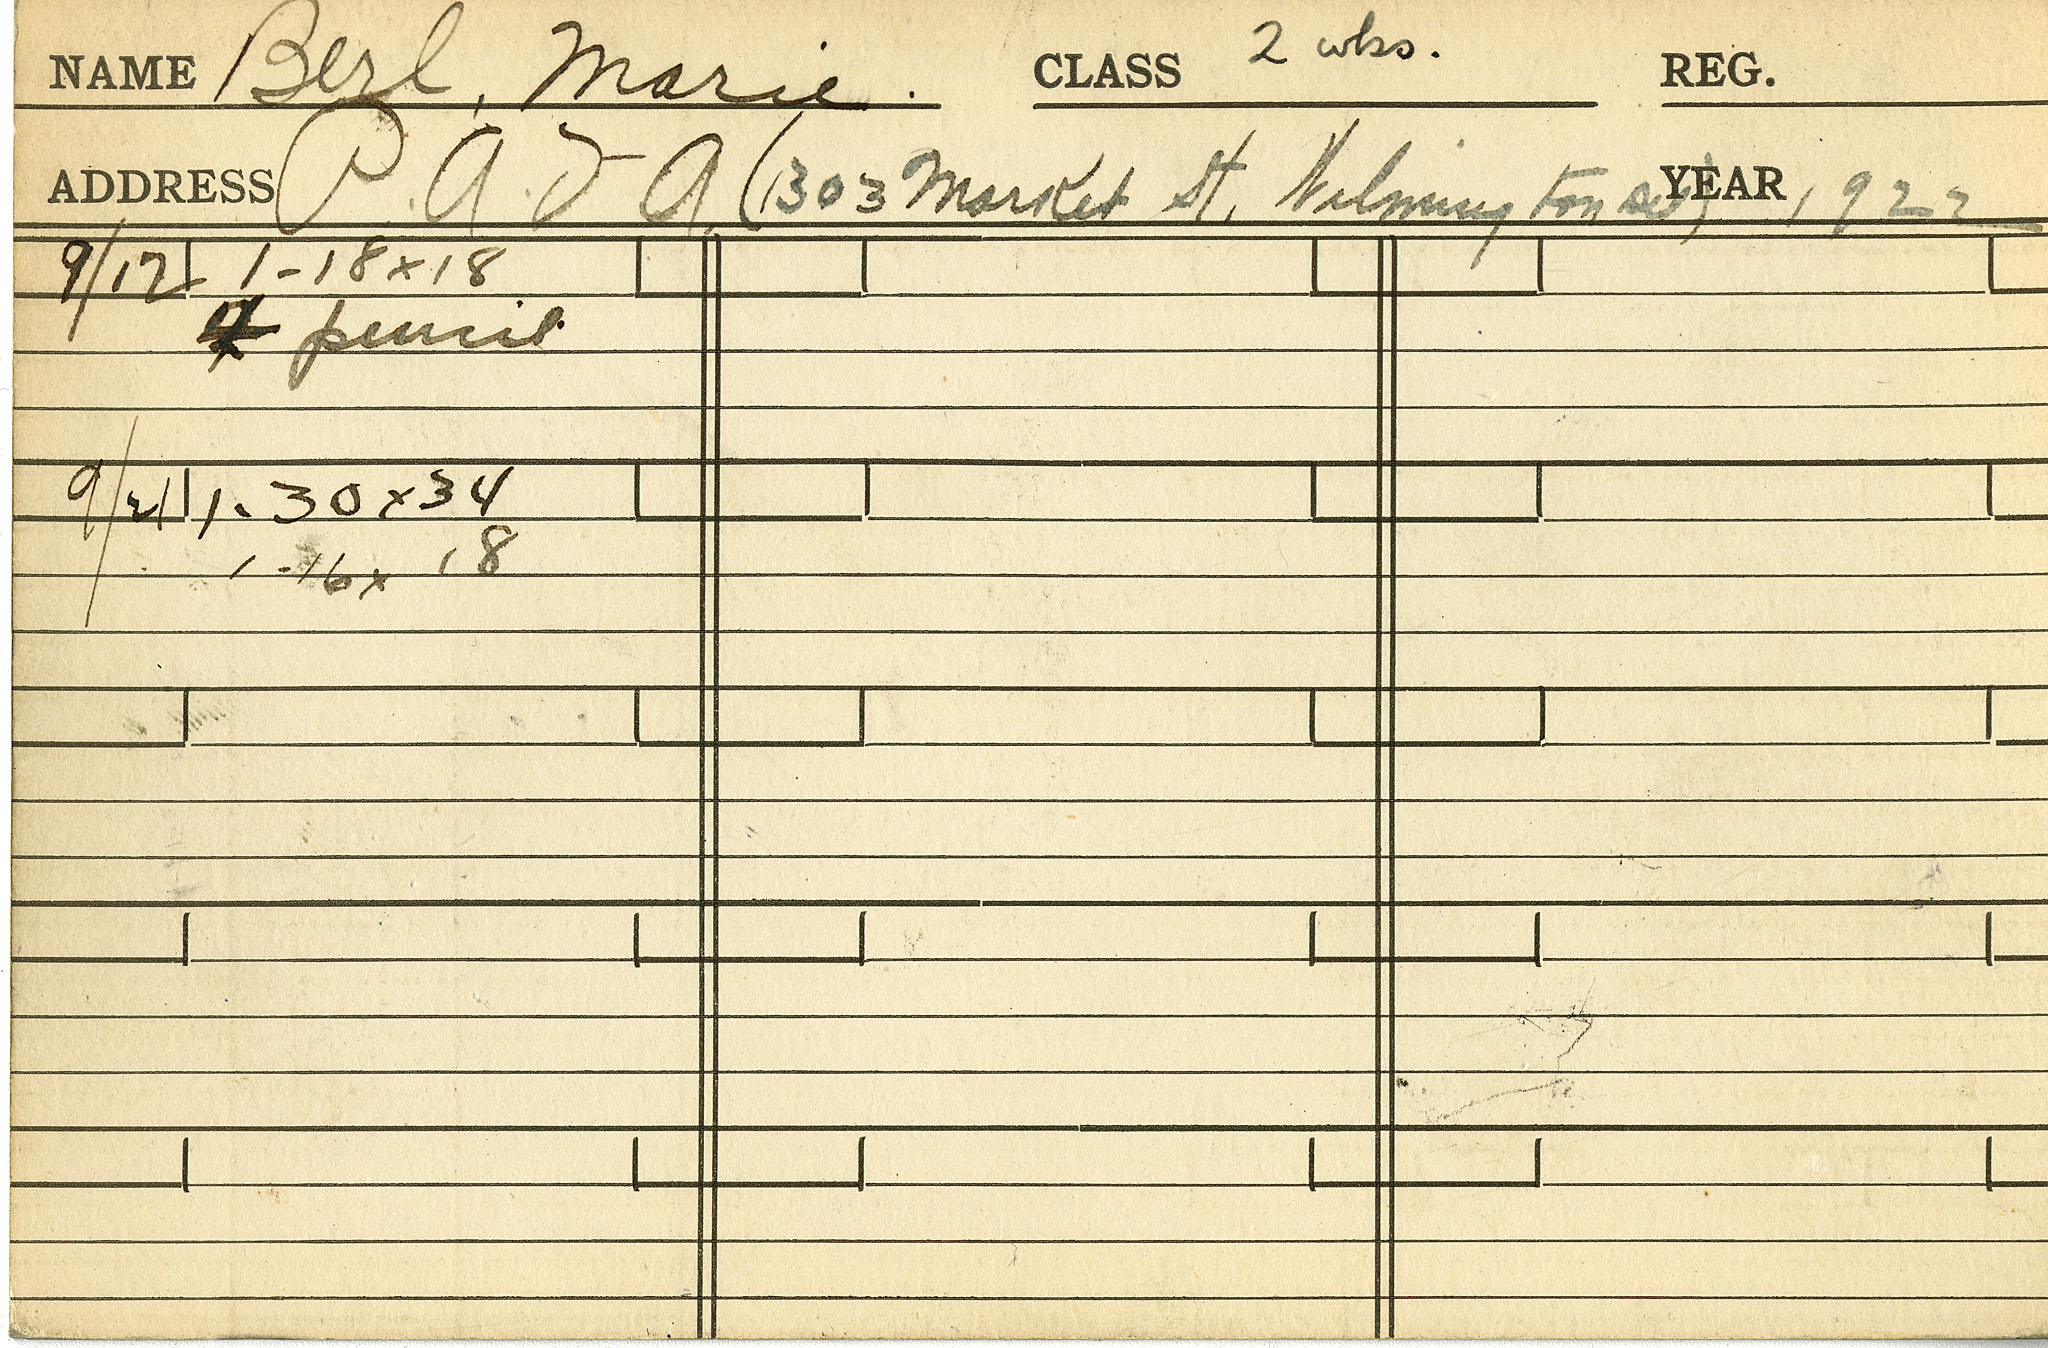 NAME Berl, Marie. CLASS 2 wks. REG.
ADDRESS P.A.F.A. (1303 Market St, Wilmington Del) YEAR 1922
9/12 1-18x18
pencil
9/21 1-30x34
1-16x18